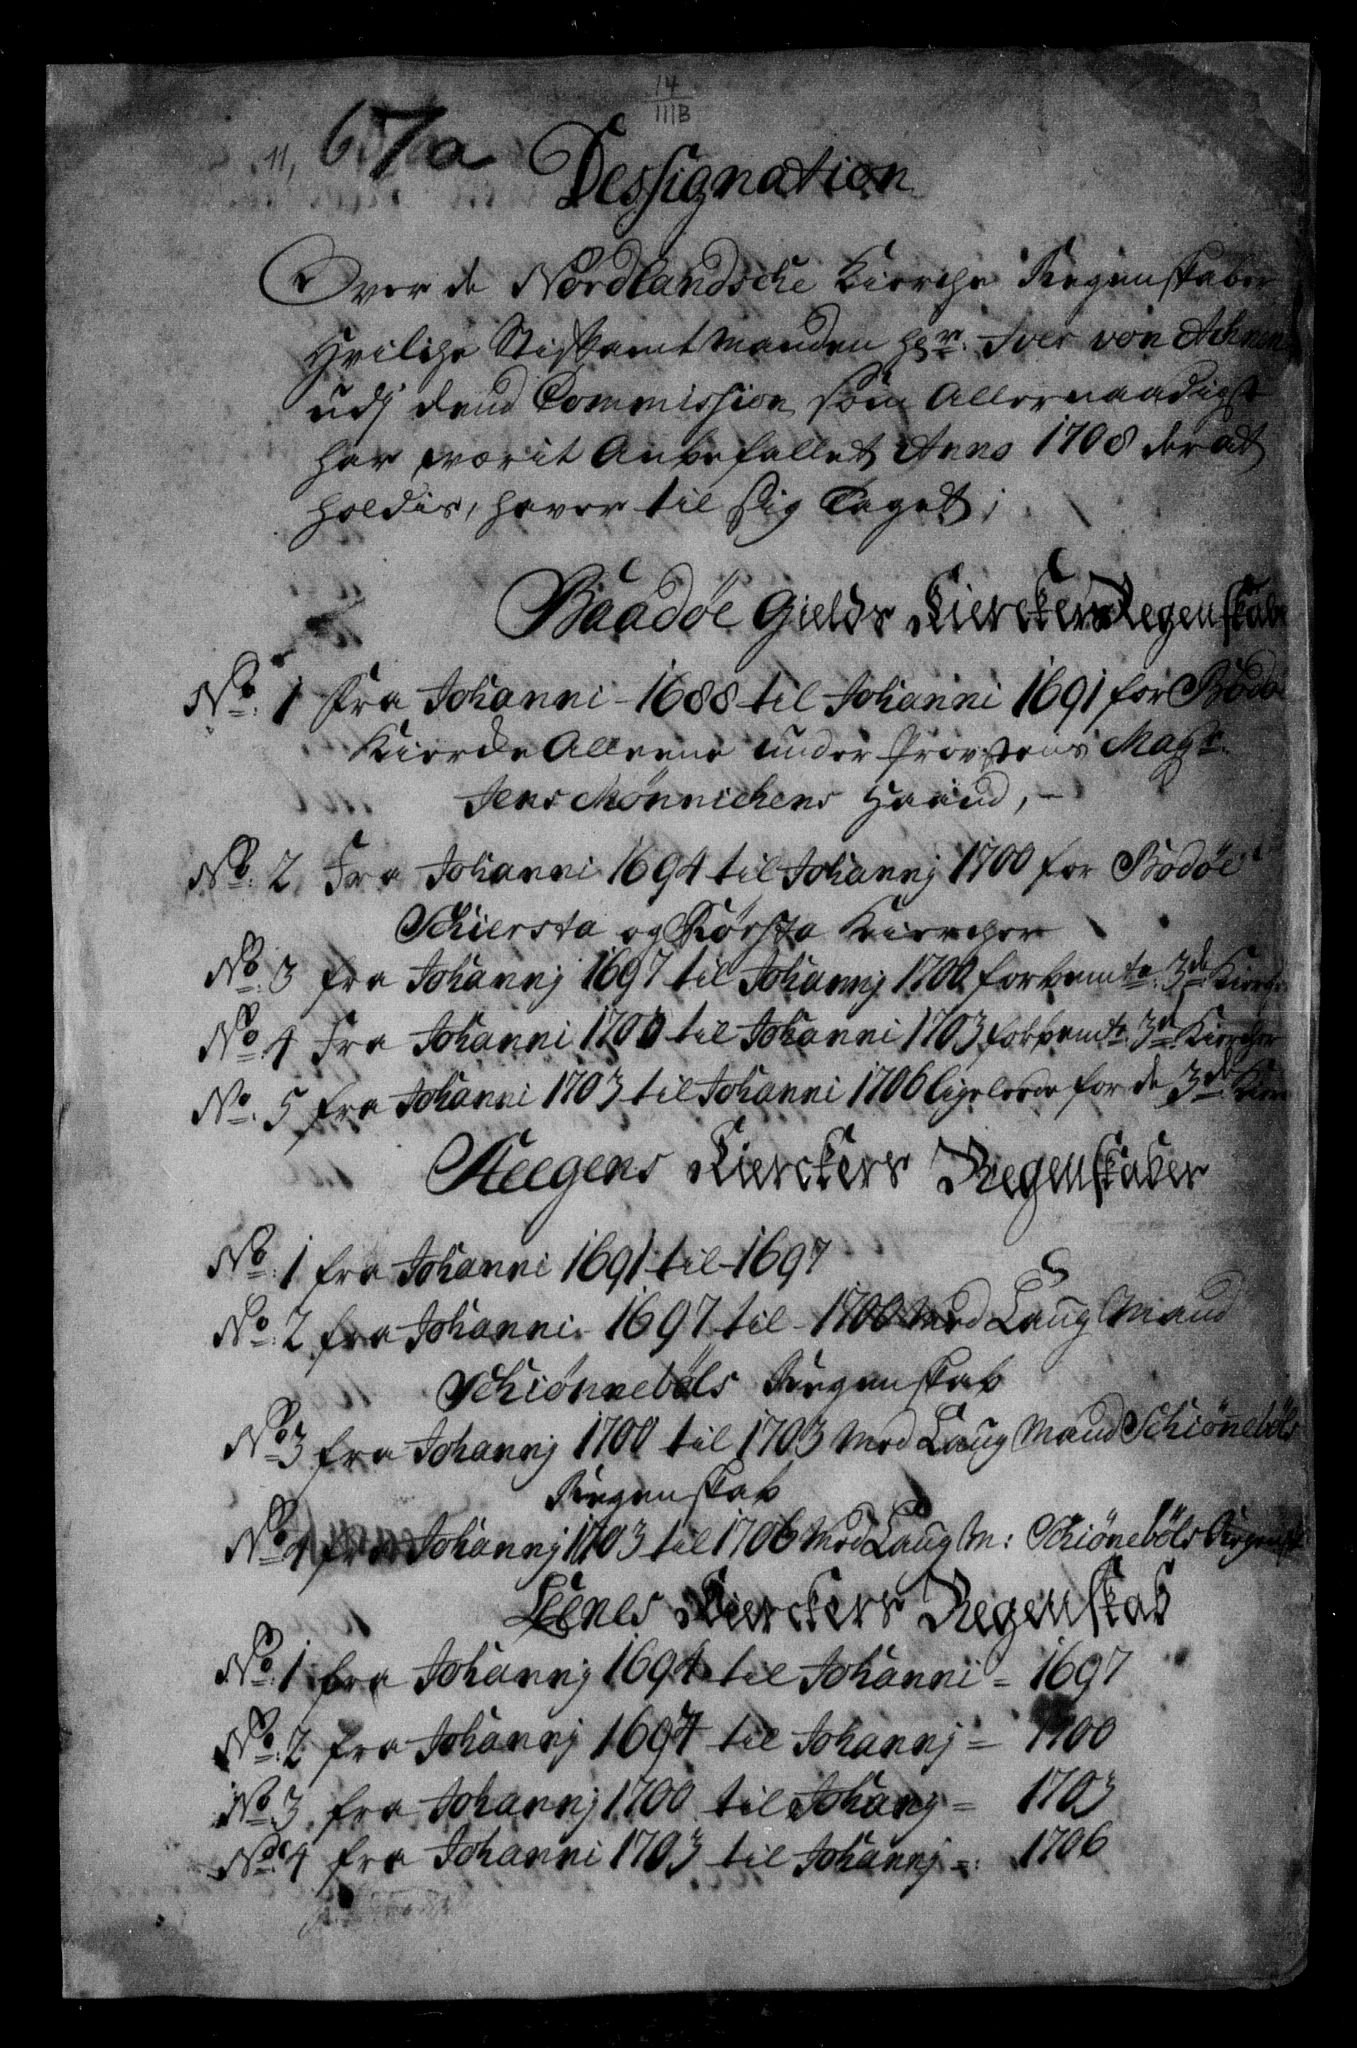 14
IIIB
11, 67a
Dessignation
Over de Nordlandsche Kierche Regenskaber
Hvilche Stiftamtmanden Hr. Iver von Ahnen
udj dend Commission som Allernaadigst
har værit Anbefallet Anno 1708 derat
holdis, haver til sig Taget;
Baadøe Gields Kierckers Regenskab
No. 1 Fra Johanni 1688 til Johanni 1691 for Bodø
Kierche Alleene under Provstens Magr.
Jens Mønnichens Haand,
No. 2 Fra Johanni 1694 til Johannj 1700 for Bodøe
Schiersta og Rørsta Kiercher
No. 3 fra Johannj 1697 til Johannj 1700 forbemte. 3de Kircher
No. 4 Fra Johanni 1700 til Johanni 1703 forbemte. 3de Kircher
No. 5 fra Johanni 1703 til Johanni 1706 ligeledes for de 3de Kier
Steegens Kierckers Regenskaber
No. 1 fra Johanni 1691 til 1697
No. 2 fra Johanni 1697 til 1700 Med Laug Mand
Schiønnebøls Regenskab
No 3 fra Johannj 1700 til 1703 Med Laug Mand Schiønebøls
Regenskab
No 4 fra Johannj 1703 til 1706 Med Laug M: Schiønebøls Regensk
Leenes Kierckers Regenskab
No. 1 fra Johannj 1694 til Johanni = 1697
No. 2 fra Johannj 1697 til Johannj = 1700
No 3 fra Johannj 1700 til Johanj = 1703
No. 4 fra Johanni 1703 til Johannj =: 1706